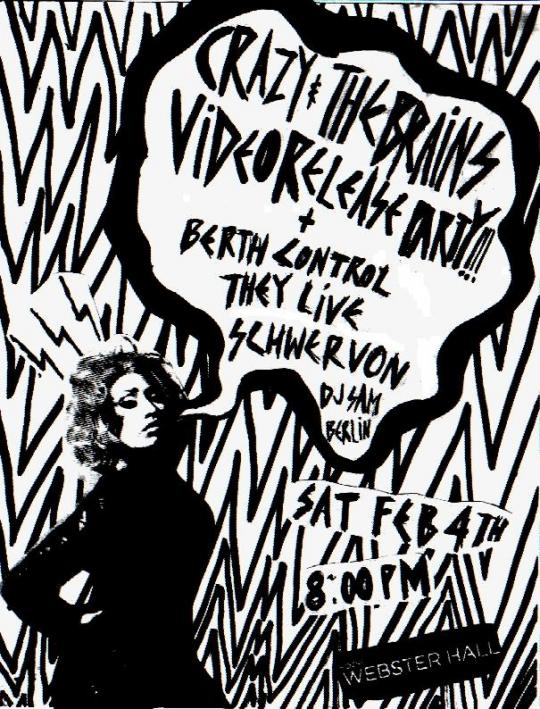 CRAZY & THE BRAINS
VIDEO RELEASE PARTY!!!
+
BERTH CONTROL
THEY LIVE
SCHWERVON
DJ SAM
BERLIN
SAT FEB 4TH
8:00 PM
WEBSTER HALL